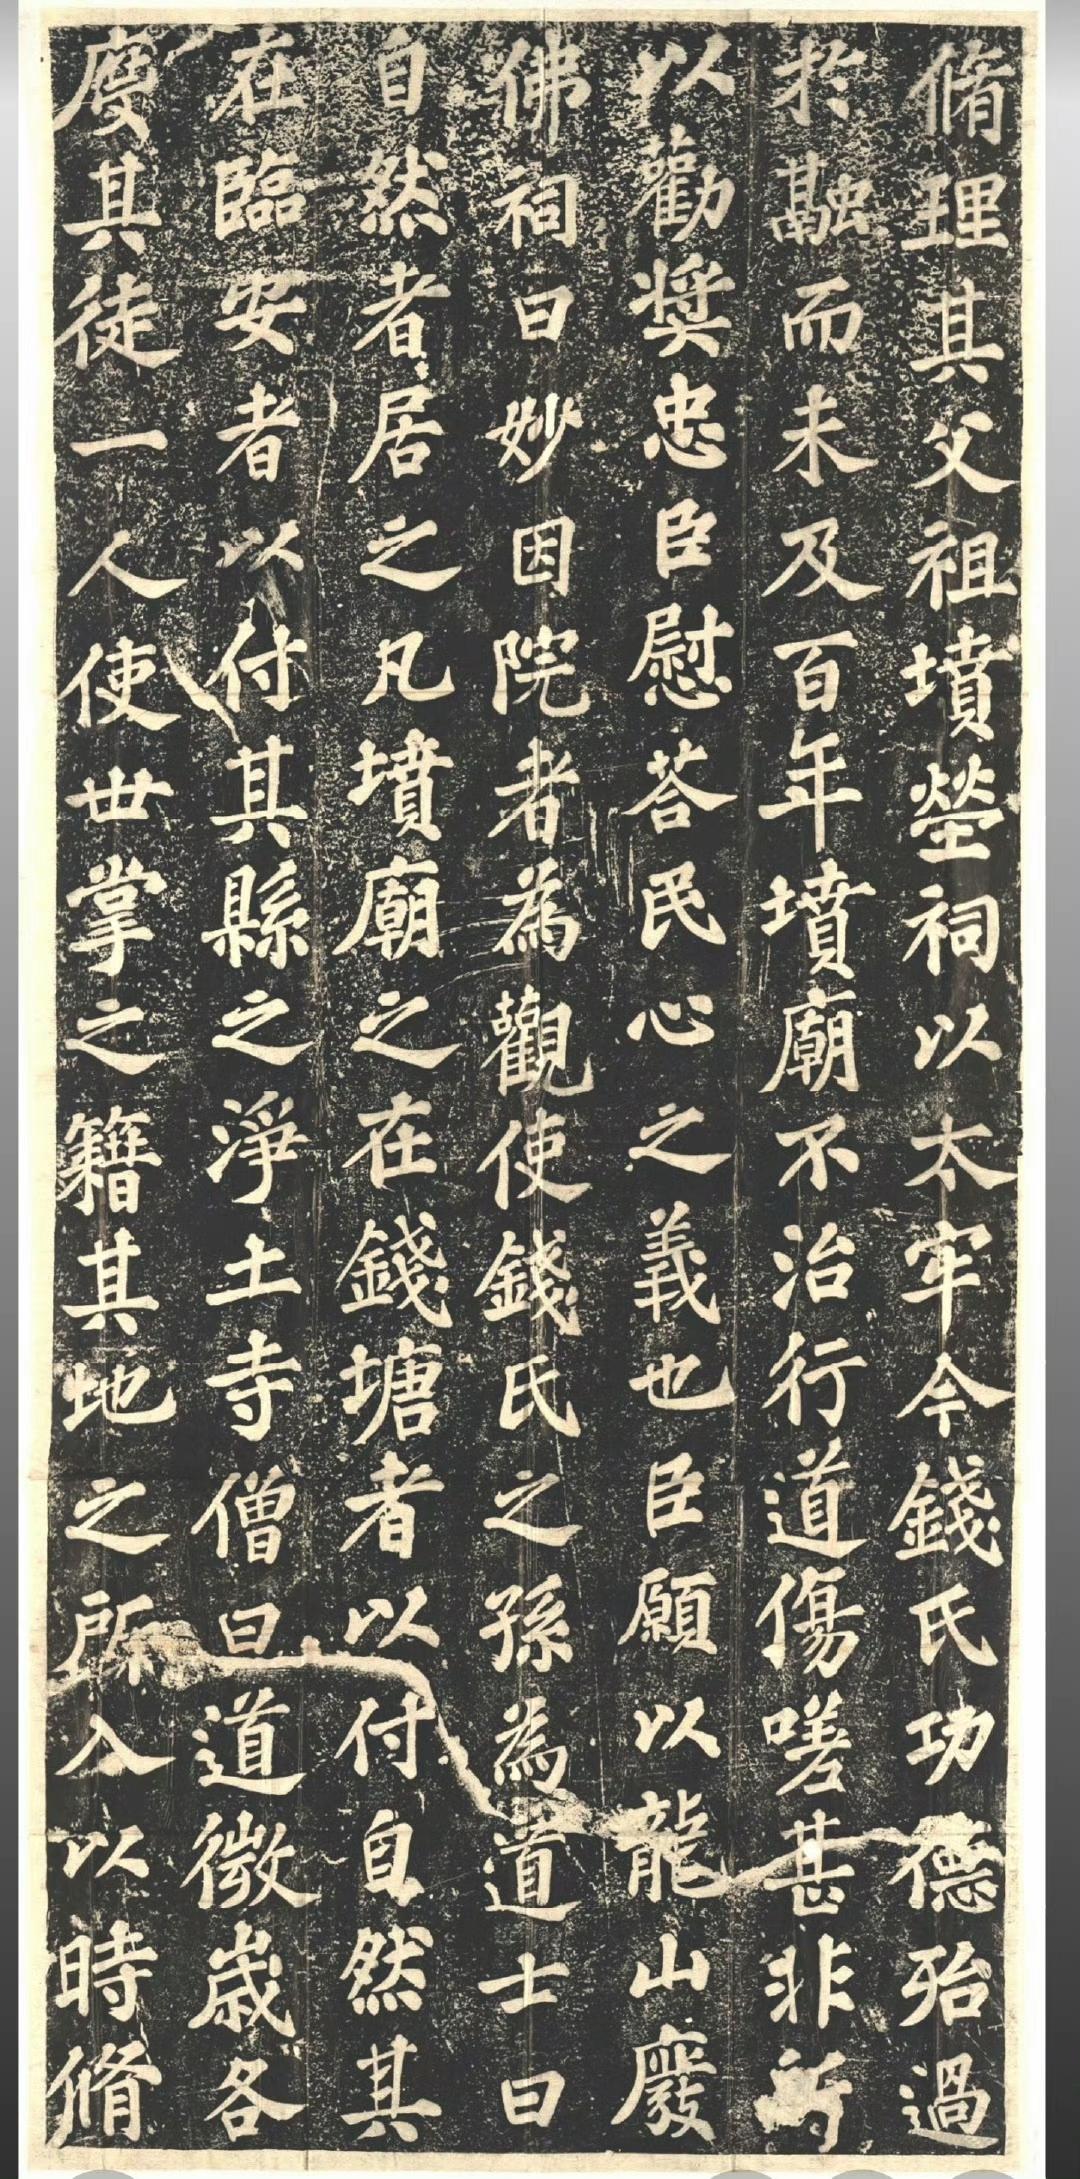 脩理其父祖墳塋祠以太牢今錢氏功德殆過
於融而未及百年墳廟不治行道傷嗟甚非所
以勸奬忠臣慰荅民心之義也臣願以龍山廢
佛祠曰妙因院者為觀使錢氏之孫為道士曰
自然者居之凡墳廟之在錢塘者以付自然其
在臨安者以付其縣之淨土寺僧曰道微歲各
度其徒一人使世掌之籍其地之所入以時脩